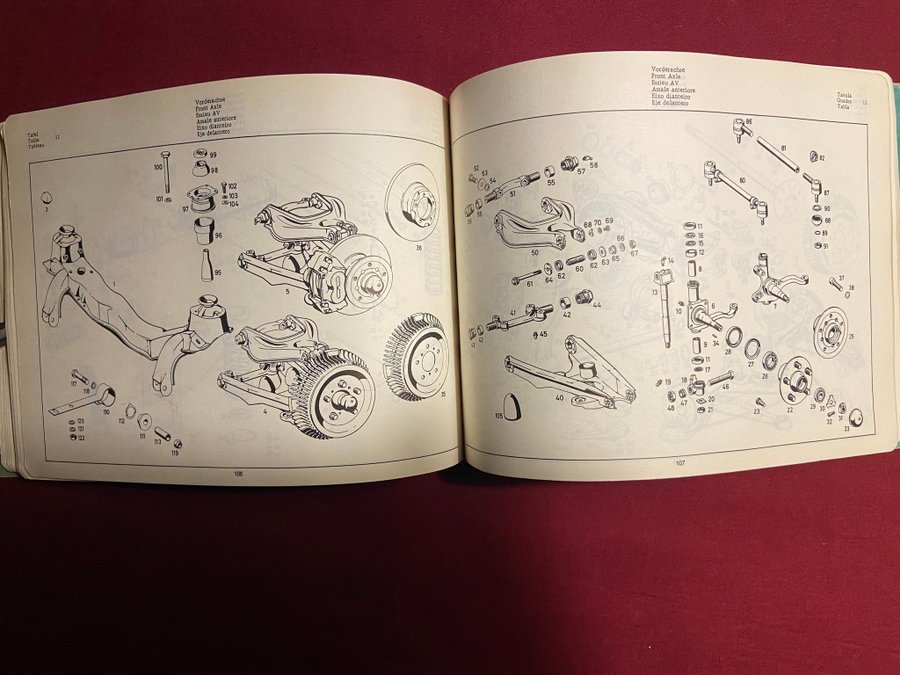 Tafel
Table 11
Tableau
Vorderachse
Front Axle
Essieu AV
Assale anteriore
Eixo dianteiro
Eje delantero
3
100
99
98
102
103
104
101
97
96
95
36
1
5
4
35
117
118
110
112
111
113
119
120
121
122
106
Vorderachse
Front Axle
Essieu AV
Assale anteriore
Eixo dianteiro
Eje delantero
Tavola
Quadro 11
Tabla
52
53
54
51
55
57
58
56
55
50
68
70
69
61
64
62
60
62
63
65
66
67
41
42
44
43
42
45
40
105
86
81
82
80
87
90
88
89
91
11
16
15
12
8
14
13
10
6
7
37
38
34
28
27
26
25
9
11
17
19
18
46
48
47
20
21
23
22
29
30
32
31
33
107